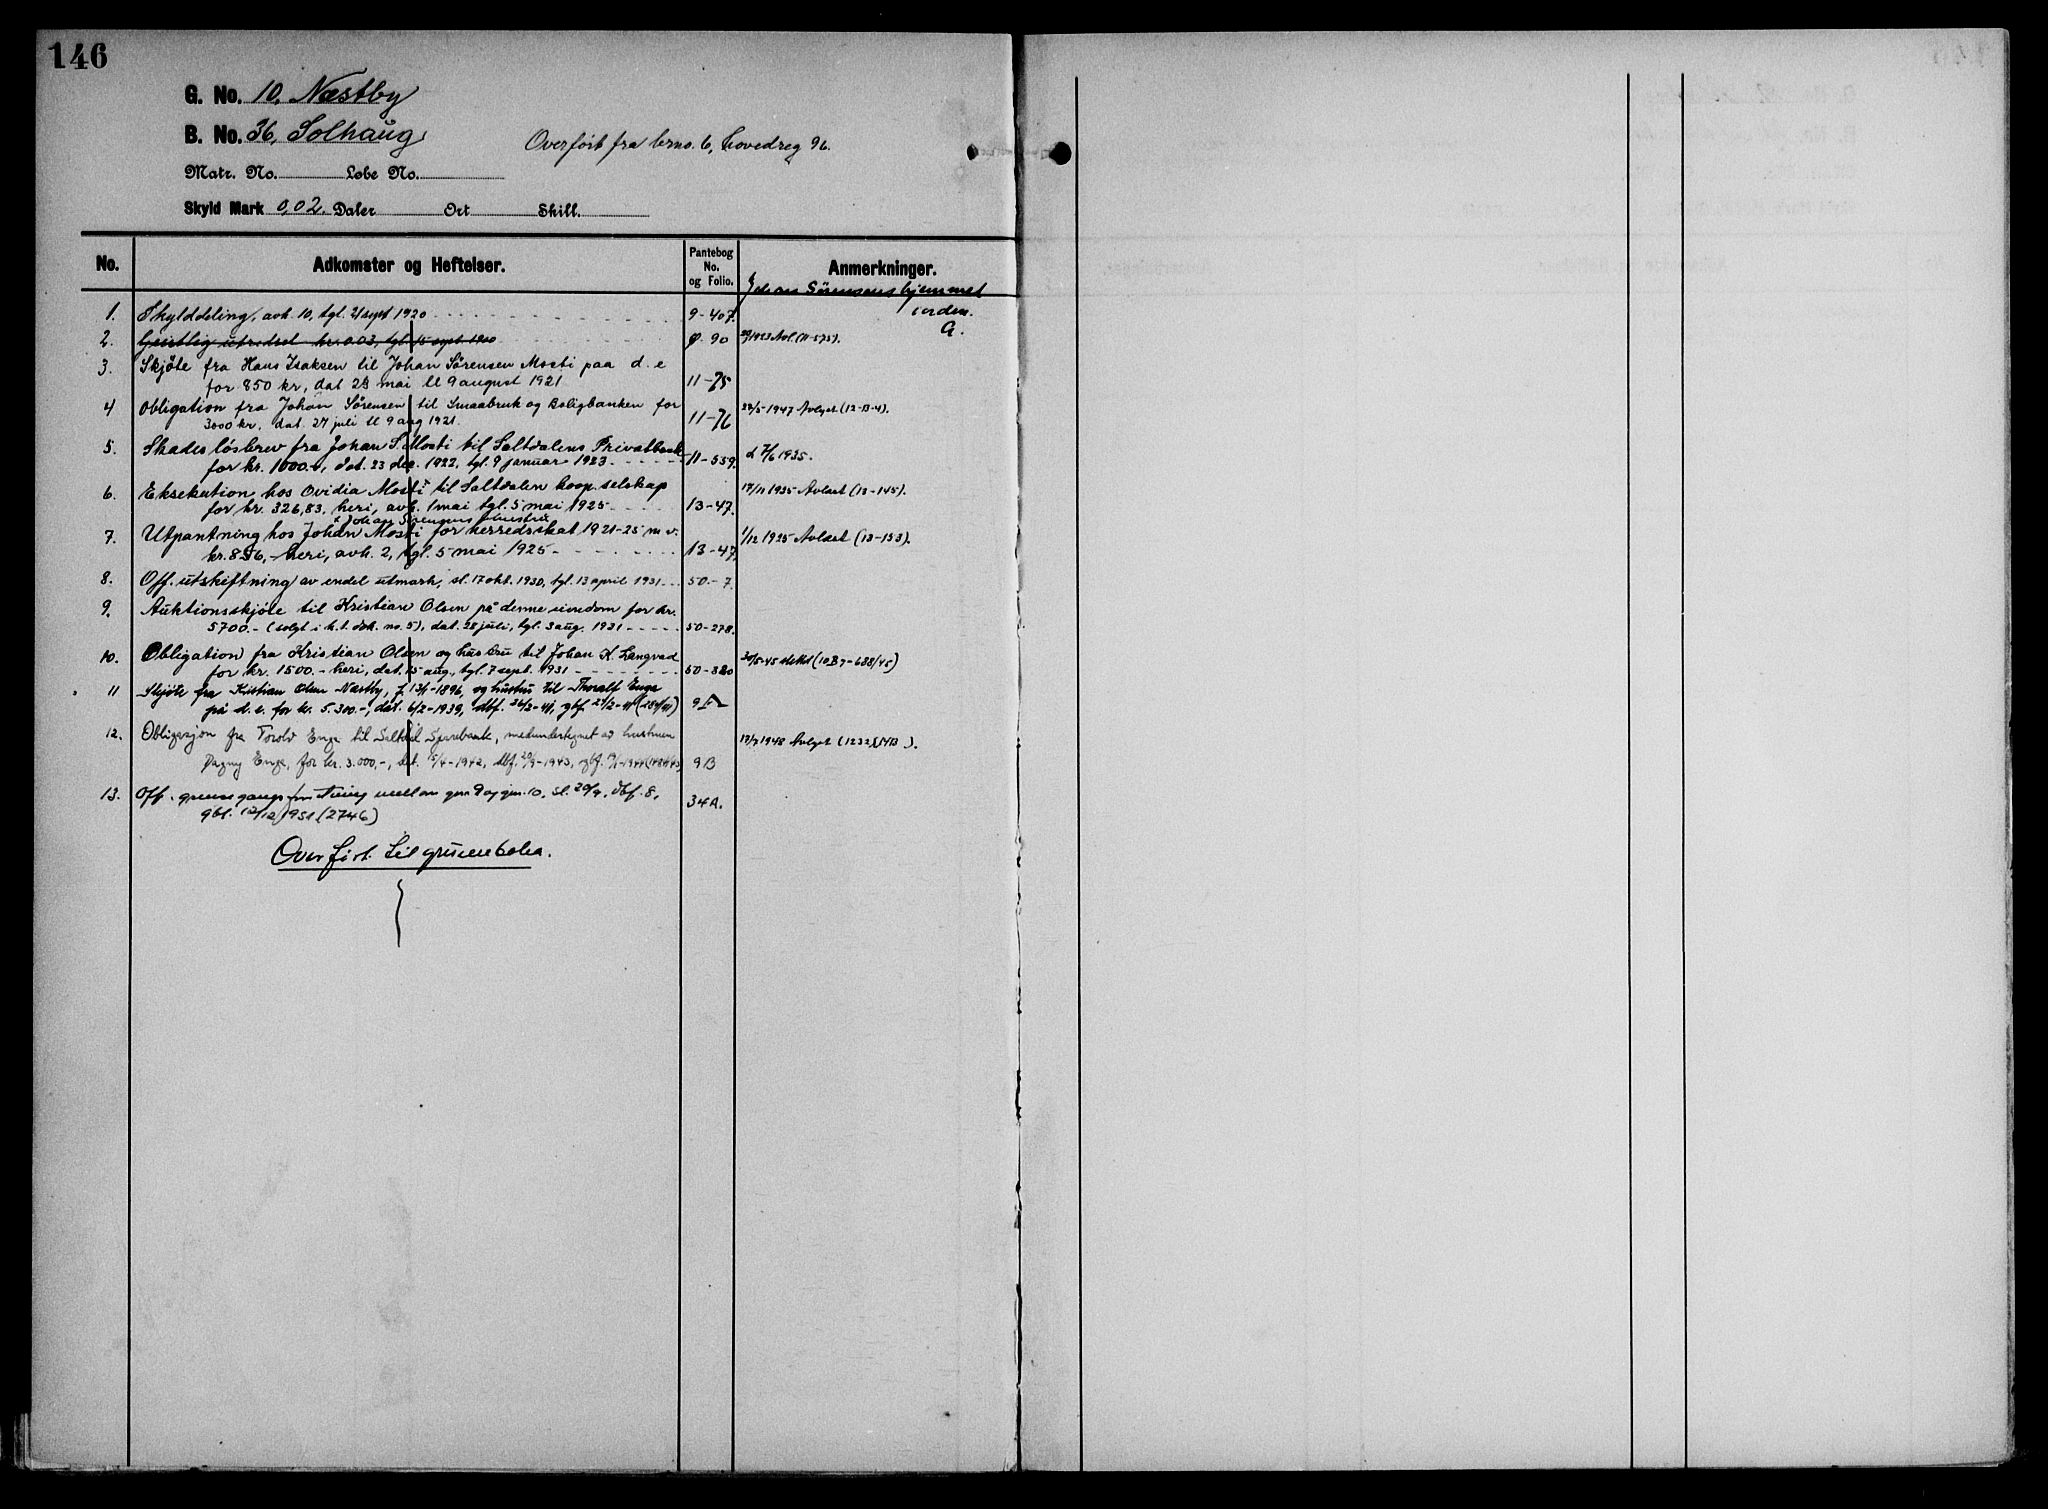 146
G. No. 10, Næstby
B. No. 36, Solhaug
Overført fra brno. 6, hovedreg 96.
Matr. No. Løbe No.
Skyld Mark 0,02. Daler Ort Skill.
No. Adkomster og Heftelser. Pantebog No. og Folio. Anmerkninger.
Johan Sørensens hjemmel
i orden.
G.
1. Skylddeling, avh. 10, tgl. 21 sept 1920 9-407.
2. Geistlig utredsel kr. 0.03, tgl. 15 sept. 1900 90 1923 Avl. (11-575).
3. Skjøte fra Hans Isaksen til Johan Sørensen Mosti paa d. e
for 850 kr, dat 28 mai tl 9 august 1921 11-75
4 Obligation fra Johan Sørensen til Smaabruk og Boligbanken for
3000 kr. dat. 27 juli tl 9 aug 1921. 11-76 22/5-1947 Avlyst (12-B-4).
5. Skadesløsbrev fra Johan S. Mosti til Saltdalens Privatbank
for kr. 1000.-, dat. 23 des. 1922, tgl. 9 januar 1923. 11-559. d 7/6 1935.
6. Eksekution hos Ovidia Mosti x til Saltdalen koop. selskap
for kr. 326,83, heri, avh. 1 mai tgl. 5 mai 1925 13-47. 17/11 1925 Avlæst (13-145).
x Johan Sørensens hustru
7. Utpantning hos Johan Mosti for herredsskat 1921-25 m. v.
kr. 856,- heri, avh. 2, tgl. 5 mai 1925 13-47. 1/12 1925 Avlæst (13-153).
8. Off. utskiftning av endel utmark, sl. 17 okt. 1930, tgl. 13 april 1931 50-7
9. Auktionsskjøte til Kristian Olsen på denne eiendom for kr.
5700.- (solgt i h. t. dok. no. 5), dat. 28 juli, tgl. 3 aug. 1931 50-278.
10. Obligation fra Kristian Olsen og hustru til Johan K. Langvad
for kr. 1500.- heri, dat. 15 aug., tgl. 7 sept. 1931 50-320 30/5-45 slettet (10B7-638/45)
11 Skjøte fra Kristian Olsen Næstby, f. 13/1-1896, og hustru til Thoralf Enge
på d. e. for kr. 5.300.-, dat. 6/2-1939, dbf. 26/2-41, gbf. 27/2-41 (284/41) 9
12. Obligasjon fra Torolv Enge til Saltdal Sparebank, medundertegnet av hustruen
Dagny Enge, for kr. 3.000,-, dat. 15/4-1942, dbf. 20/9-1943, gbf. 9B 12/7 1948 Avlyst (1232, 14B).
13. Off. grensegangsforretning mellom gnr. 9 og gnr. 10, sl. 20/9, dbf. 8,
gbf. 12/12 1951 (2746) 34A.
Overført til grunnboka.